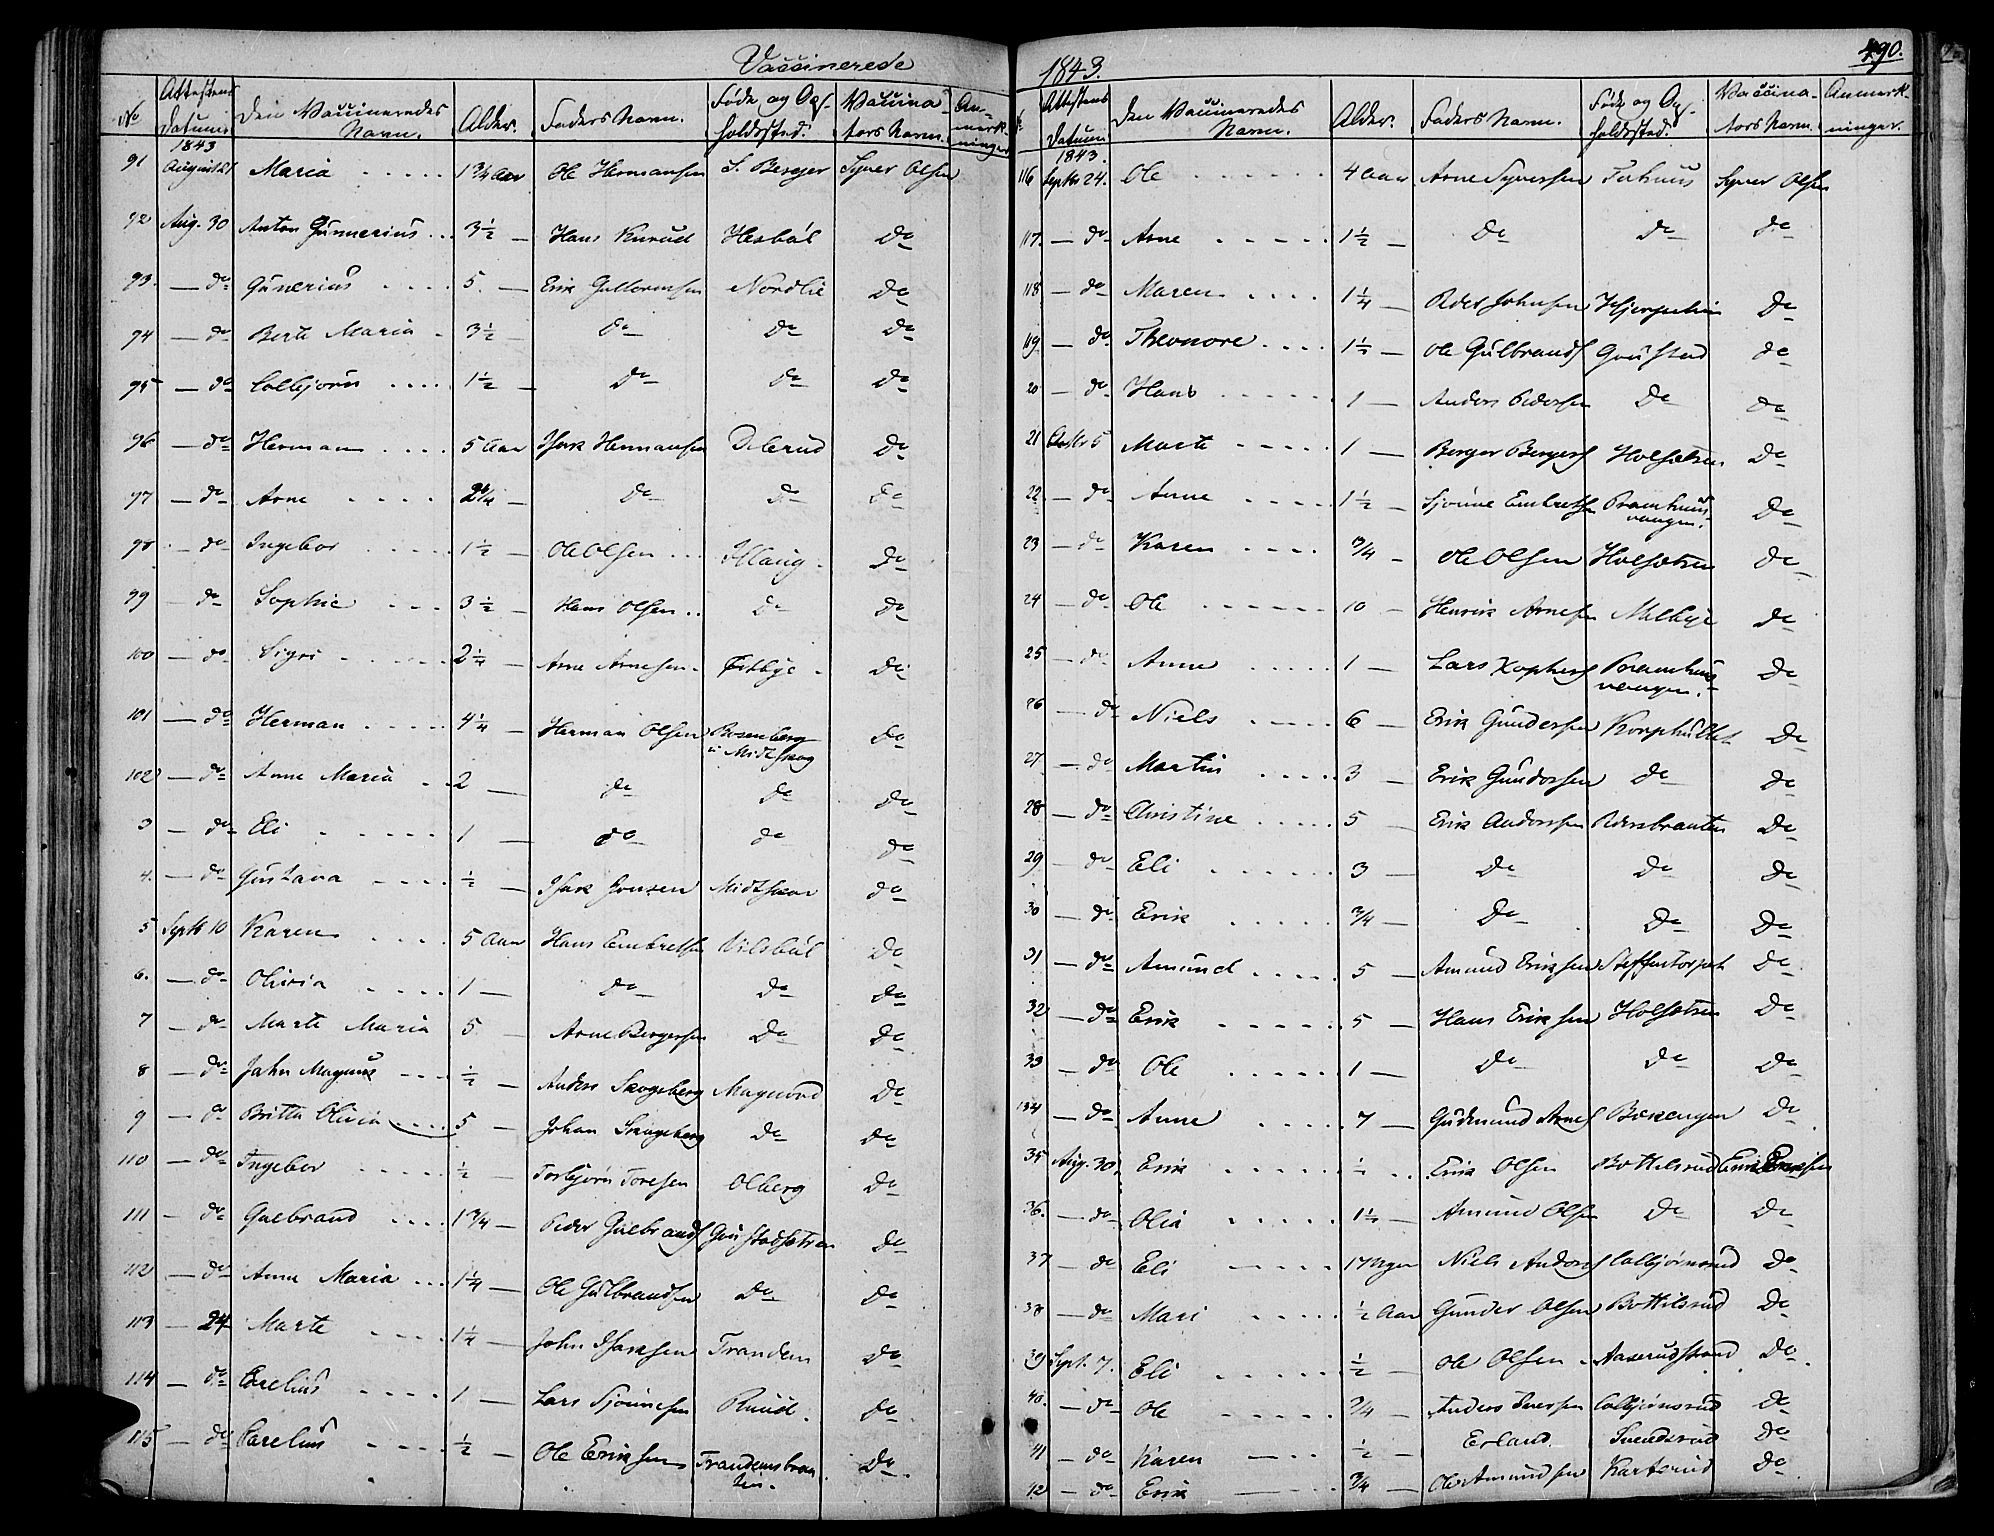 Vaccinerede
1843.
490.
No Attestens Datum Den Vaccineredes Navn. Alder. Faders Navn. Føde og Opholdssted. Vaccinators Navn. Anmerkninger
1843
91 August 21 Maria 1 3/4 Aar Ole Hermansen S. Berger Syver Olsen
92 Aug. 30 Anton Gunnerius 3 1/2 — Hans Knrud Hesbøl do
93. — do Gunerius 5. — Erik Guttormsen Nordlie do
94 — do Berte Maria 3 1/2 — do do do
95 — do Colbjørn 1 1/2 — do do do
96 — do Herman 5 Aar Isak Hermansen Deberud do
97 — do Arne — do do do
98 — do Ingebor 1 1/2 — Ole Olsen Haug do
99 — do Sophie 3 1/2 — Hans Olsen do do
100 — do Sigri 2 1/4 — Arne Arnesen do
101 — do Herman 4 1/4 — Herman Olsen Bosenberg i Midtskog do
102 — do Anne Maria 2 — do do do
3 — do Eli 1 — do do do
4. — do Gustava 1/2 — Isak Jonsen Midtskog do
5 Septbr 10 Karen 5 Aar Hans Embretsen Vilsbøl do
6. — do Olivia 1 — do do do
7 — do Marte Maria 5 Arne Bergersen do do
8 — do John Magnus 1/2 — Anders Skogeberg Magnord do
9 — do Britta Olivia 5 — Johan Skogeberg do do
110 — do Ingebor 1/2 — Torbjørn Toresen Olberg do
111 — do Gulbrand 1 3/4 — Peder Gulbrands Goustadsætren do
112 — do Anne Maria 1 1/4 — Ole Gulbrandsen do do
113 — 24 Marte 1 1/4 — John Isaksen Trandem do
114 — do Carelius 1 — Lars Sjønnesen Ruud. do
115 — do Carelius 1/2 — Ole Eriksen Trandemsbraaten. do
No Attestens Datum Den Vaccineredes Navn. Alder. Faders Navn. Føde og Opholdssted. Vaccinators Navn. Anmerkninger.
1843.
116 Septbr 24. Ole 4 Aar Arne Syversen Syver Olsen
117. — do Arne 1 1/2 — do do do
118 — do Maren 1 1/4 — Peder Johnsen do
119 — do Theonore 1 1/2 — Ole Gulbrands Goustad do
20 — do Hans 1 — Anders Pedersen do do
21 5 Marte 1 — Berger Bergers Holsætren do
22 — do Anne 1 1/2 — Sjønne Embretsen Pramhuusvangen. do
23 — do Karen 3/4 — Ole Olsen Holsætren do
24 — do Ole 10 — Henrik Arnesen Melbye do
25 — do Anne 1 — Lars Pramhuusvangen. do
26 — do Niels 6 — Erik Gundersen Korphultet do
27 — do Martin 3 — Erik Gundersen do do
28 — do Christine 5 — Erik Andersen Pedersbraaten do
29 — do Eli 3 — do do do
30 — do Erik 3/4 — do do do
31 — do Amund 5 — Amund Eriksen Steffentorpet do
32 — do Erik 5 — Hans Eriksen Holsætren do
33 — do Ole 1 — do do do
134 — do Anne 7 — Gudmund Arnes Bækengen do
35 Aug. 30. Erik 1/2 Erik Olsen Bottelsrud Erik Eriksen
36. — do Olia 1 1/2 — Amund Olsen do do
37 — do Eli 17 Uger Niels Anders Colbjørnsrud do
38 — do Mari 1/2 Aar Gunder Olsen Bottilsrud do
39 Sept. 7. Eli 1/2 — Ole Olsen Aaserudstrand do
40. — do Ole 3/4 — Anders Iversen Colbjørnsrud do
41 — do Karen 1/2 — Erland Svendsrud do
42 — do Erik 3/4 — Ole Amundsen Karterud do